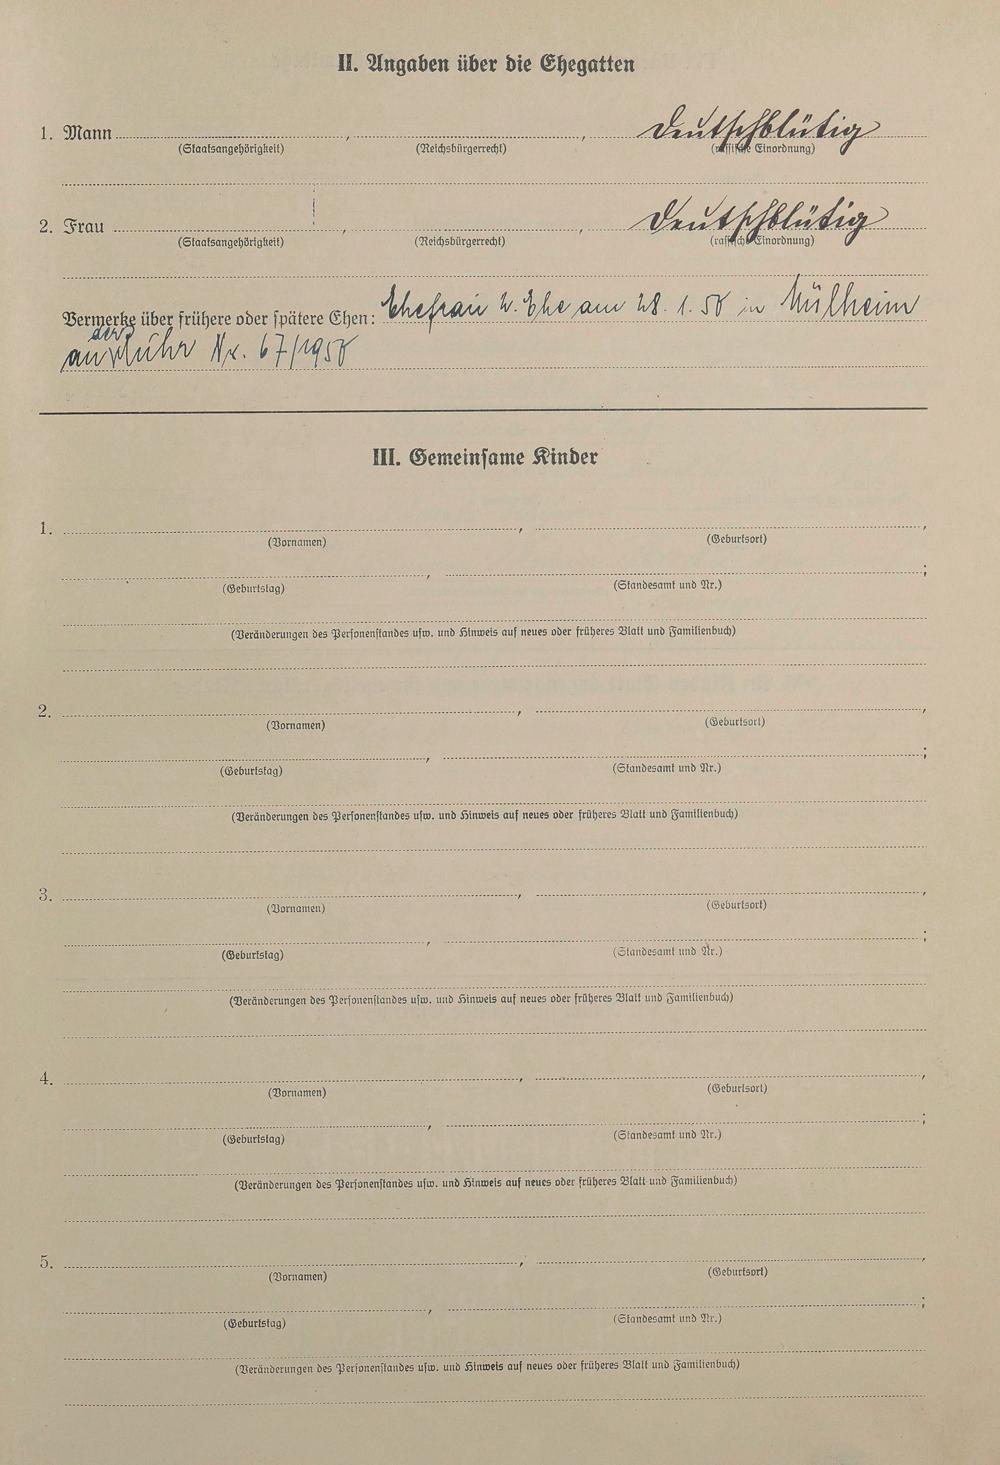 II. Angaben über die Ehegatten
1. Mann , , deutschblütig
(Staatsangehörigkeit) (Reichsbürgerrecht) (rassische Einordnung)
2. Frau , , deutschblütig
(Staatsangehörigkeit) (Reichsbürgerrecht) (rassische Einordnung)
Vermerke über frühere oder spätere Ehen: Ehefrau 2. Ehe am 28. 1. 50 in Mülheim
der
an Ruhr Nr. 67/1950
III. Gemeinsame Kinder
1. , ,
(Vornamen) (Geburtsort)
, ;
(Geburtstag) (Standesamt und Nr.)
(Veränderungen des Personenstandes usw. und Hinweis auf neues oder früheres Blatt und Familienbuch)
2. , ,
(Vornamen) (Geburtsort)
, ;
(Geburtstag) (Standesamt und Nr.)
(Veränderungen des Personenstandes usw. und Hinweis auf neues oder früheres Blatt und Familienbuch)
3. , ,
(Vornamen) (Geburtsort)
, ;
(Geburtstag) (Standesamt und Nr.)
(Veränderungen des Personenstandes usw. und Hinweis auf neues oder früheres Blatt und Familienbuch)
4. , ,
(Vornamen) (Geburtsort)
, ;
(Geburtstag) (Standesamt und Nr.)
(Veränderungen des Personenstandes usw. und Hinweis auf neues oder früheres Blatt und Familienbuch)
5. , ,
(Vornamen) (Geburtsort)
, ;
(Geburtstag) (Standesamt und Nr.)
(Veränderungen des Personenstandes usw. und Hinweis auf neues oder früheres Blatt und Familienbuch)